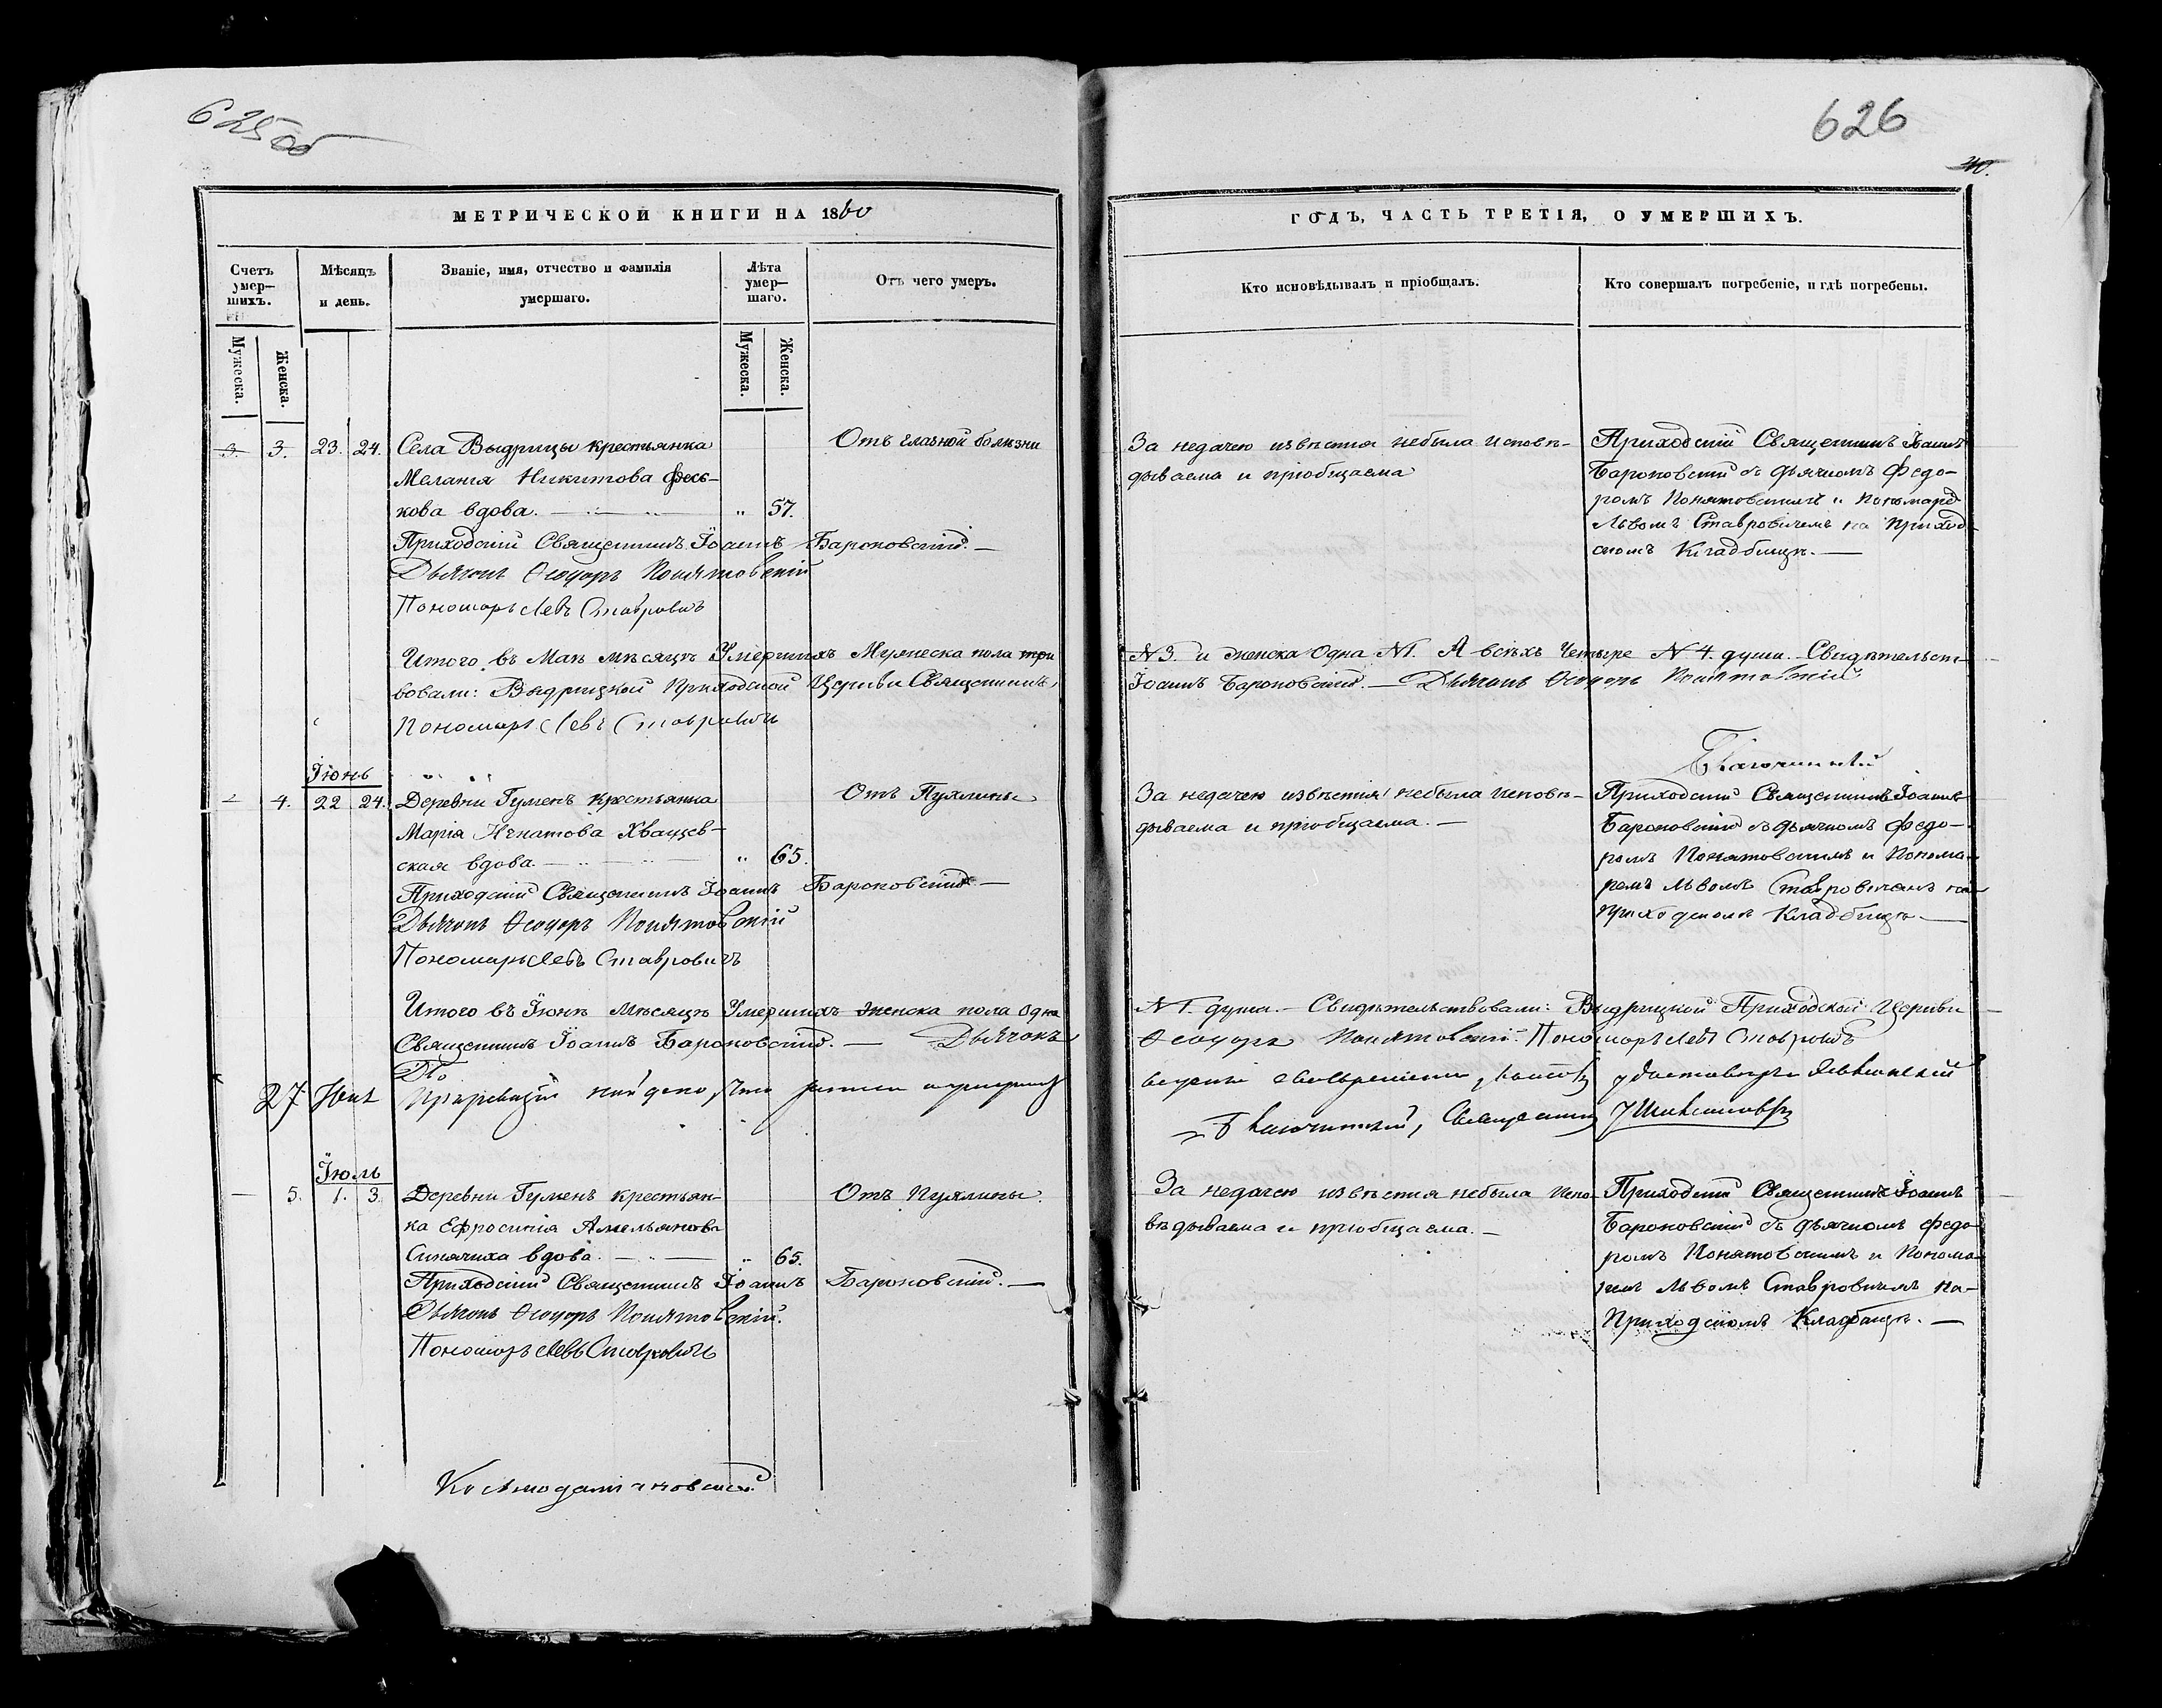 625об
МЕТРИЧЕСКОЙ КНИГИ НА 1860
Счетъ умер—шихъ.
Мѣсяцъ и день.
Званіе, имя, отчество и фамилія умершаго.
Лѣта умер—шаго.
Отъ чего умеръ.
Мужеска.
Женска.
Мужеска.
Женска.
3. 3. 23. 24. Села Выдрицы крестьянка
Отъ глазной болѣзни
Меланія Никитова Фесь-
кова вдова. „ 57.
Приходскій Священникъ Іоаннъ Бароновскій. —
Дьячокъ Ѳеодоръ Понятовскій
Пономарь Левъ Ставровичъ
Итого въ Маѣ мѣсяцѣ Умершихъ Мужеска пола три
вовали: Выдрицкой Приходской Церкви Священникъ
Пономарь Левъ Ставровичъ
Іюнь
4. 22 24. Деревни Гуменъ крестьянка
Отъ Пухлины
Марія Игнатова Хващев-
ская вдова. „ 65.
Приходскій Священникъ Іоаннъ Бароновскій —
Дьячокъ Ѳеодоръ Понятовскій
Пономарь Левъ Ставровичъ
Итого въ Іюнѣ Мѣсяцѣ Умершихъ женска пола одна
Священникъ Іоаннъ Бароновскій. — Дьячокъ
27
Іюль
5. 1. 3. Деревни Гуменъ крестьян-
Отъ Пухлины
ка Ефросинія Амельянова
Синячиха вдова. „ 65.
Приходскій Священникъ Іоаннъ Бароновскій. —
Дьячокъ Ѳеодоръ Понятовскій.
Пономарь Левъ Ставровичъ
Космодаміановской
626
ГОДЪ, ЧАСТЬ ТРЕТІЯ, О УМЕРШИХЪ.
Кто исповѣдывалъ и пріобщалъ.
Кто совершалъ погребеніе, и гдѣ погребены.
За недачею извѣстія небыла исповѣ-
дываема и пріобщаема
Приходскій Священникъ Іоаннъ
Бароновскій съ дьячкомъ Федо-
ромъ Понятовскимъ и Пономаремъ
Львомъ Ставровичемъ на Приход-
скомъ Кладбищѣ. —
N 3. и женска Одна N 1. А всѣхъ Четыре N 4. души. Свидѣтельст-
Іоаннъ Бароновскій. — Дьячокъ Ѳеодоръ Понятовскій
Благочинный
За недачею извѣстія небыла исповѣ-
дываема и пріобщаема. —
Приходскій Священникъ Іоаннъ
Бароновскій съ дьячкомъ Федо-
ромъ Понятовскимъ и Понома-
ремъ Львомъ Ставровичемъ на
Приходскомъ Кладбищѣ. —
N 1. душа. — Свидѣтельствовали: Выдрицкой Приходской Церкви
Ѳеодоръ Понятовскій. Пономарь Левъ Ставровичъ
Благочинный, Священникъ
За недачею извѣстія небыла испо-
вѣдываема и пріобщаема. —
Приходскій Священникъ Іоаннъ
Бароновскій съ дьячкомъ Федо-
ромъ Понятовскимъ и Понома-
ремъ Львомъ Ставровичемъ на
Приходскомъ Кладбищѣ. —